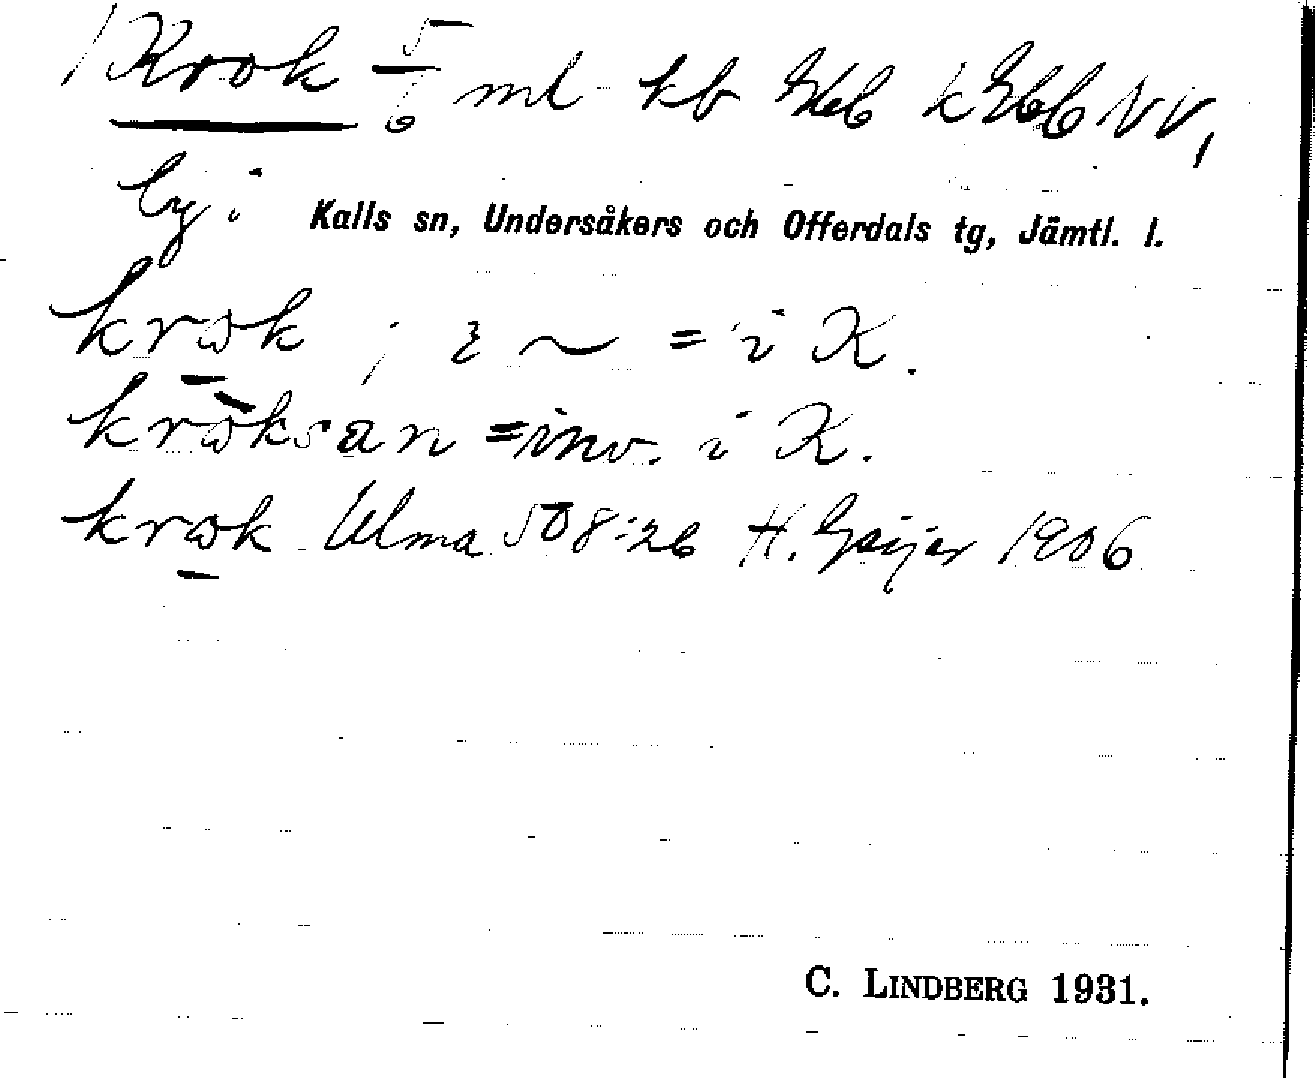 1 Krok 5/6 ml kb
by i Kalls sn, Undersåkers och Offerdals tg, Jämtl. l.
krωk ; i ~ = i K.
krὼksan = inv. i K.
krωk Ulma 508:26 H. Geijer 1906
C. LINDBERG 1931.